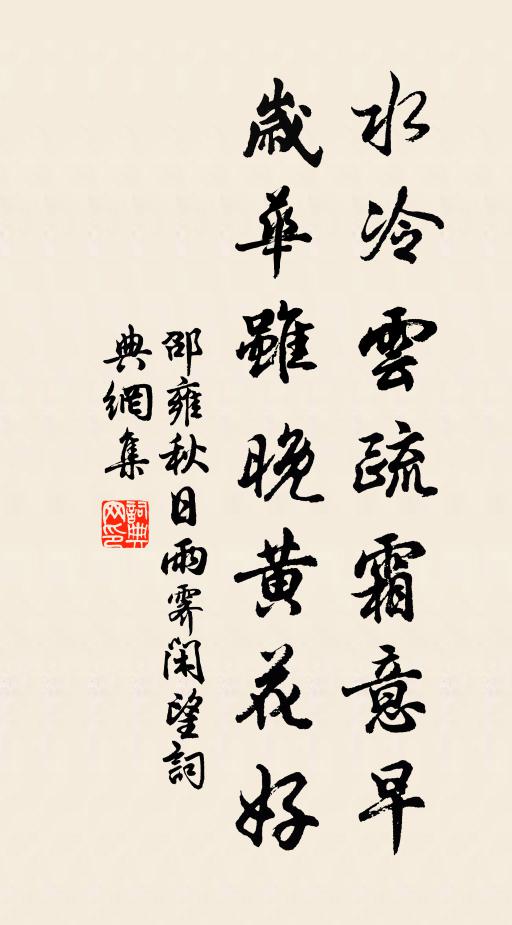 水冷雲疏霜意早
歲華雖晚黃花好
邵雍秋日雨霽閑望詞
典網集
詞典
网印